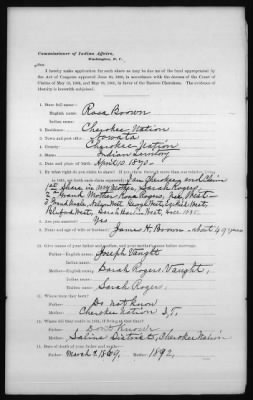 Commissioner of Indian Affairs,
Washington, D. C.
Sir:
I hereby make application for such share as may be due me of the fund appropriated by
the Act of Congress approved June 30, 1906, in accordance with the decrees of the Court of
Claims of May 18, 1905, and May 28, 1906, in favor of the Eastern Cherokees. The evidence of
identity is herewith subjoined.
1. State full name:
English name: Rosa Brown
Indian name:
2. Residence: Cherokee Nation
3. Town and post office: Nowata
4. County: Cherokee Nation
5. State: Indian Territory
6. Date and place of birth: April 10, 1870
7. By what right do you claim to share? If you claim through more than one relative living
in 1851, set forth each claim separately: I am Cherokee and Claim
1st Share in my Mother, Sarah Rogers
2nd Grand Mother
George West
Bluford West,
8. Are you married? Yes
9. Name and age of wife or husband: James H. Brown
10. Give names of your father and mother, and your mother's name before marriage.
Father—English name: Joseph Vaught
Indian name:
Mother—English name: Sarah Rogers Vaught,
Indian name:
Maiden name: Sarah Rogers
11. Where were they born?
Father: Do not know
Mother: Cherokee Nation I,T,
12. Where did they reside in 1851, if living at that time?
Father: Dont Know
Mother: Saline District, Cherokee Nation
13. Date of death of your father and mother—
Father: March 4, 1869, Mother: 1892,